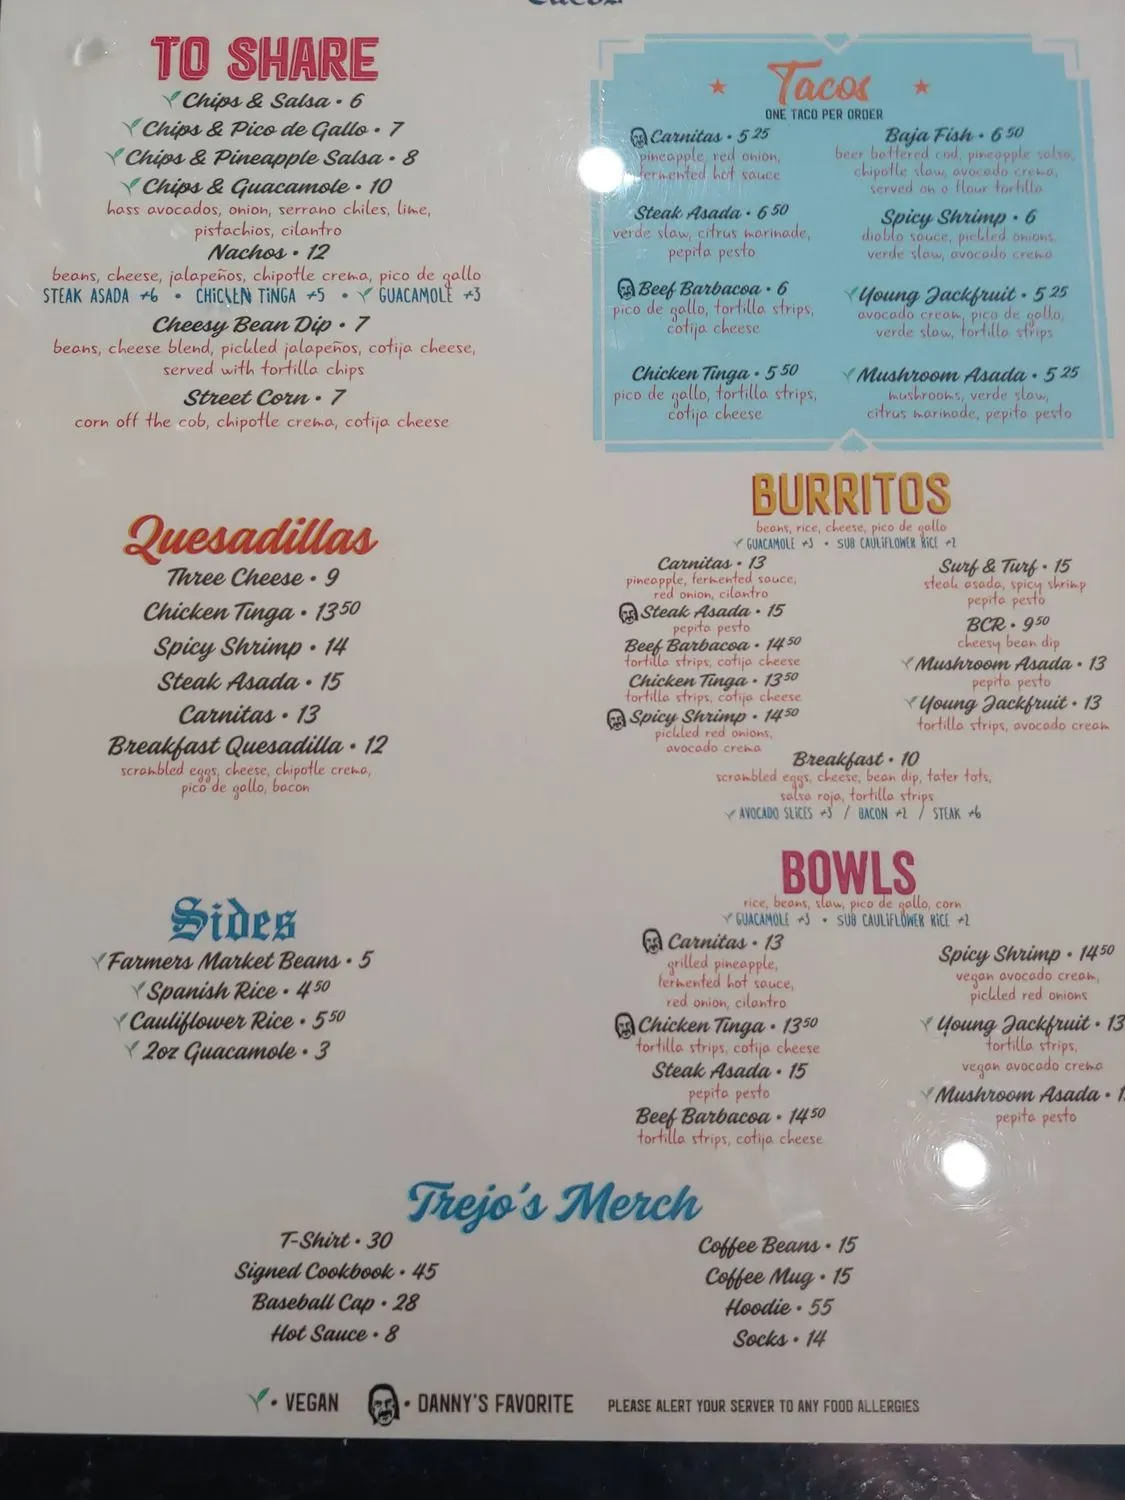 Tacos
TO SHARE
Chips & Salsa • 6
Chips & Pico de Gallo • 7
Chips & Pineapple Salsa • 8
Chips & Guacamole • 10
hass avocados, onion, serrano chiles, lime,
pistachios, cilantro
Nachos • 12
beans, cheese, jalapeños, chipotle crema, pico de gallo
STEAK ASADA +6 • CHICKEN TINGA +5 • GUACAMOLE +3
Cheesy Bean Dip • 7
beans, cheese blend, pickled jalapeños, cotija cheese,
served with tortilla chips
Street Corn • 7
corn off the cob, chipotle crema, cotija cheese
Quesadillas
Three Cheese • 9
Chicken Tinga • 13 50
Spicy Shrimp • 14
Steak Asada • 15
Carnitas • 13
Breakfast Quesadilla • 12
scrambled eggs, cheese, chipotle crema,
pico de gallo, bacon
Sides
Farmers Market Beans • 5
Spanish Rice • 4 50
Cauliflower Rice • 5 50
2oz Guacamole • 3
Tacos
ONE TACO PER ORDER
Carnitas • 5 25
pineapple, red onion,
fermented hot sauce
Steak Asada • 6 50
verde slaw, citrus marinade,
pepita pesto
Beef Barbacoa • 6
pico de gallo, tortilla strips,
cotija cheese
Chicken Tinga • 5 50
pico de gallo, tortilla strips,
cotija cheese
Baja Fish • 6 50
beer battered cod, pineapple salsa,
chipotle slaw, avocado crema,
served on a flour tortilla
Spicy Shrimp • 6
diablo sauce, pickled onions,
verde slaw, avocado crema
Young Jackfruit • 5 25
avocado cream, pico de gallo,
verde slaw, tortilla strips
Mushroom Asada • 5 25
mushrooms, verde slaw,
citrus marinade, pepita pesto
BURRITOS
beans, rice, cheese, pico de gallo
GUACAMOLE +3 • SUB CAULIFLOWER RICE +2
Carnitas • 13
pineapple, fermented sauce,
red onion, cilantro
Steak Asada • 15
pepita pesto
Beef Barbacoa • 14 50
tortilla strips, cotija cheese
Chicken Tinga • 13 50
tortilla strips, cotija cheese
Spicy Shrimp • 14 50
pickled red onions,
avocado crema
Surf & Turf • 15
steak asada, spicy shrimp
pepita pesto
BCR • 9 50
cheesy bean dip
Mushroom Asada • 13
pepita pesto
Young Jackfruit • 13
tortilla strips, avocado cream
Breakfast • 10
scrambled eggs, cheese, bean dip, tater tots,
salsa roja, tortilla strips
AVOCADO SLICES +3 / BACON +2 / STEAK +6
BOWLS
rice, beans, slaw, pico de gallo, corn
GUACAMOLE +3 • SUB CAULIFLOWER RICE +2
Carnitas • 13
grilled pineapple,
fermented hot sauce,
red onion, cilantro
Chicken Tinga • 13 50
tortilla strips, cotija cheese
Steak Asada • 15
pepita pesto
Beef Barbacoa • 14 50
tortilla strips, cotija cheese
Spicy Shrimp • 14 50
vegan avocado cream,
pickled red onions
Young Jackfruit • 13
tortilla strips,
vegan avocado crema
Mushroom Asada •
pepita pesto
Trejo's Merch
T-Shirt • 30
Signed Cookbook • 45
Baseball Cap • 28
Hot Sauce • 8
Coffee Beans • 15
Coffee Mug • 15
Hoodie • 55
Socks • 14
• VEGAN • DANNY'S FAVORITE PLEASE ALERT YOUR SERVER TO ANY FOOD ALLERGIES